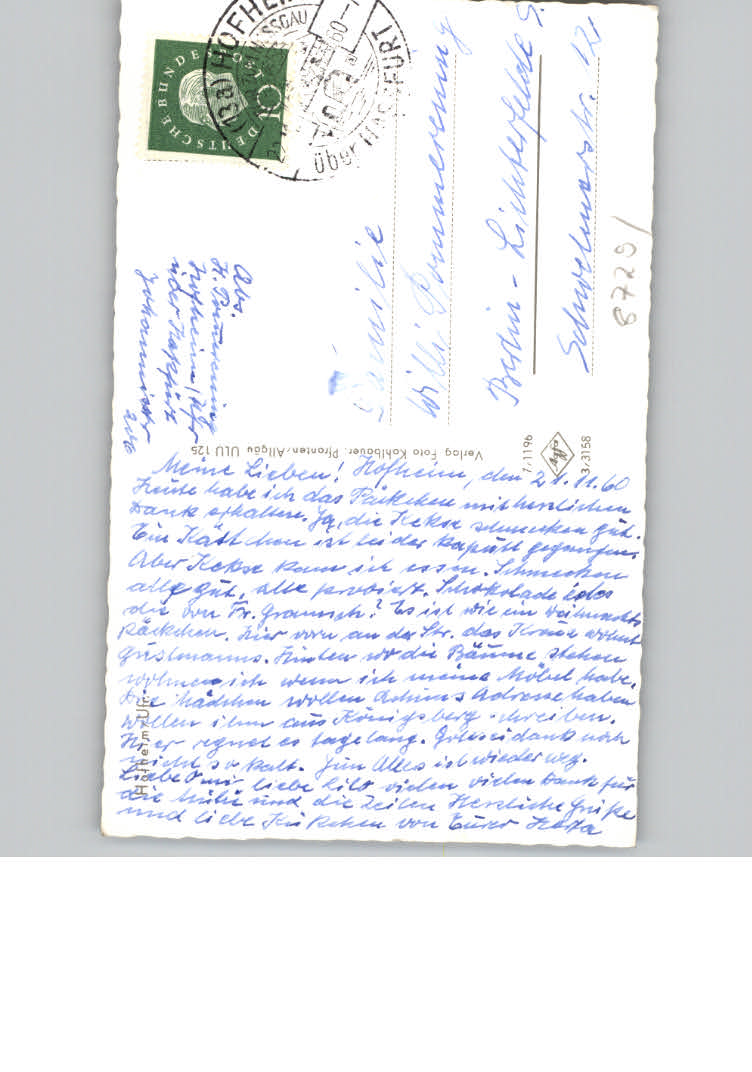 Meine Lieben! Hofheim, den 21.11.60
Heute habe ich das Päckchen mit herzlichen
Dank erhalten. Ja, die Kekse schmecken gut.
Ein Kästchen ist leider kaputt gegangen.
Aber Kekse kann ich essen. Schmecken
alle gut, alle probiert. Schokolade
die von Fr. Gramsch? Es ist wie ein Weihnachts
päckchen. Hier vorn an der Str. das Kreuz wohnt
Gustmanns. Hinten wo die Bäume stehen
wohnen ich wenn ich meine Möbel habe.
Die Mädchen wollen Achims Adresse haben
wollen ihm aus Königsberg schreiben.
Hier regnet es tagelang. Gottseidank noch
nicht so kalt. Alles ist wieder weg.
Liebe Omi liebe vielen vielen Dank für
die Mühe und die Zeilen Herzliche Grüße
und liebe Küßchen von Eurer
Hofheim/Ufr.
Abs.
H. Pommerening
Hofheim/Ufr
über Haßfurt
Johannisstr
Familie
Willi Pommerening
Berlin-Lichterfelde
Schwelmerstr. 12
8729/
DEUTSCHE BUNDESPOST
10
(13a) HOFHEIM
über HASSFURT
HASSGAU
60-
Verlag Foto Kohlbauer, Pfronten/Allgäu ULU 125
7/1196
Agfa
3.3158